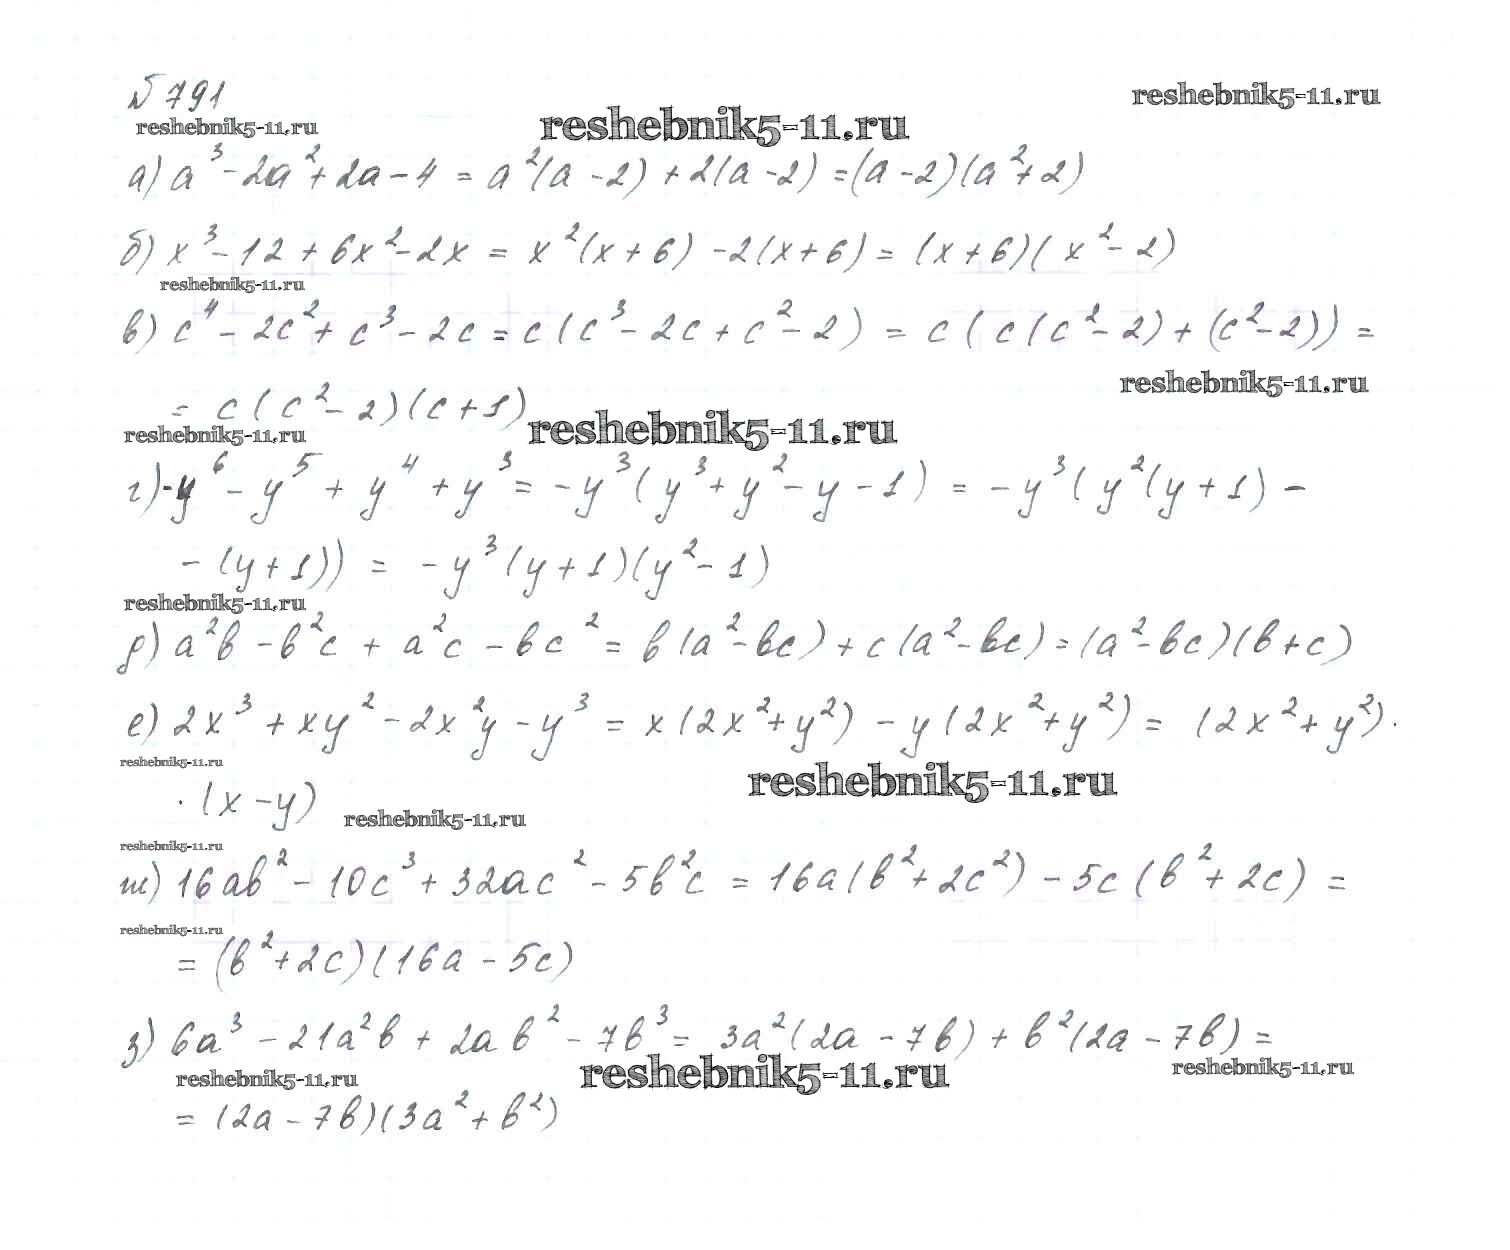 № 791
reshebnik5-11.ru
reshebnik5-11.ru
reshebnik5-11.ru
а) a³ - 2a² + 2a - 4 = a²(a - 2) + 2(a - 2) = (a - 2)(a² + 2)
б) x³ - 12 + 6x² - 2x = x²(x + 6) - 2(x + 6) = (x + 6)(x² - 2)
reshebnik5-11.ru
в) c⁴ - 2c² + c³ - 2c = c(c³ - 2c + c² - 2) = c(c(c² - 2) + (c² - 2)) =
reshebnik5-11.ru
= c(c² - 2)(c + 1)
reshebnik5-11.ru
reshebnik5-11.ru
г) -y⁶ - y⁵ + y⁴ + y³ = -y³(y³ + y² - y - 1) = -y³(y²(y + 1) -
- (y + 1)) = -y³(y + 1)(y² - 1)
reshebnik5-11.ru
д) a²b - b²c + a²c - bc² = b(a² - bc) + c(a² - bc) = (a² - bc)(b + c)
е) 2x³ + xy² - 2x²y - y³ = x(2x² + y²) - y(2x² + y²) = (2x² + y²) ·
reshebnik5-11.ru
reshebnik5-11.ru
· (x - y)
reshebnik5-11.ru
reshebnik5-11.ru
ж) 16ab² - 10c³ + 32ac² - 5b²c = 16a(b² + 2c²) - 5c(b² + 2c) =
reshebnik5-11.ru
= (b² + 2c)(16a - 5c)
з) 6a³ - 21a²b + 2ab² - 7b³ = 3a²(2a - 7b) + b²(2a - 7b) =
reshebnik5-11.ru
reshebnik5-11.ru
reshebnik5-11.ru
= (2a - 7b)(3a² + b²)